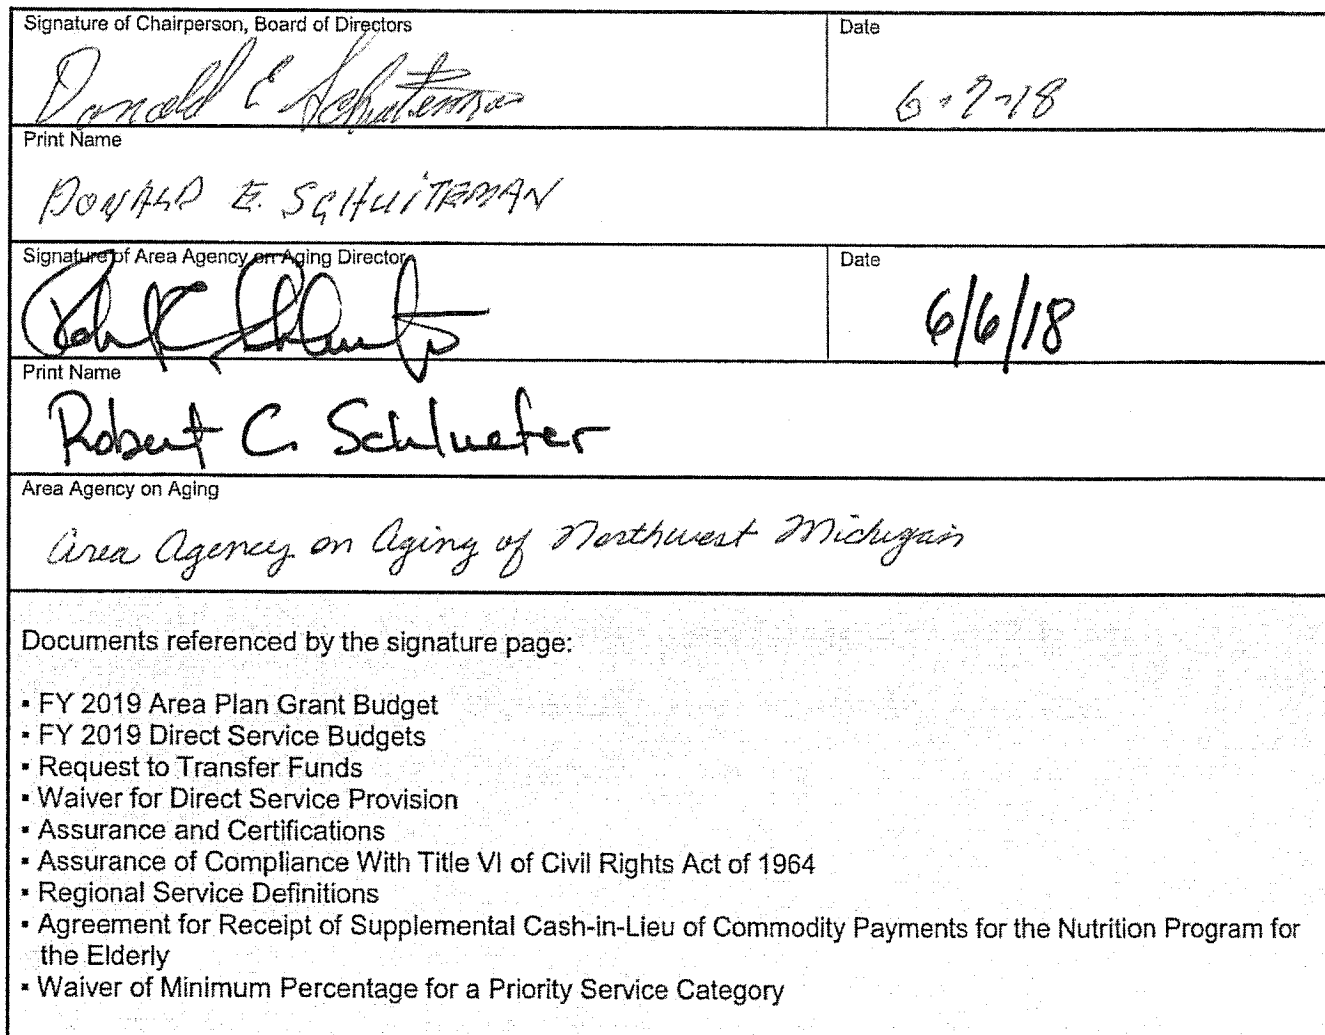 Signature of Chairperson, Board of Directors
Date
Donald E Schuiteman
6-7-18
Print Name
DONALD E. SCHUITEMAN
Signature of Area Agency on Aging Director
Date
6/6/18
Print Name
Robert C. Schlueter
Area Agency on Aging
Area Agency on Aging of Northwest Michigan
Documents referenced by the signature page:
▪ FY 2019 Area Plan Grant Budget
▪ FY 2019 Direct Service Budgets
▪ Request to Transfer Funds
▪ Waiver for Direct Service Provision
▪ Assurance and Certifications
▪ Assurance of Compliance With Title VI of Civil Rights Act of 1964
▪ Regional Service Definitions
▪ Agreement for Receipt of Supplemental Cash-in-Lieu of Commodity Payments for the Nutrition Program for
the Elderly
▪ Waiver of Minimum Percentage for a Priority Service Category